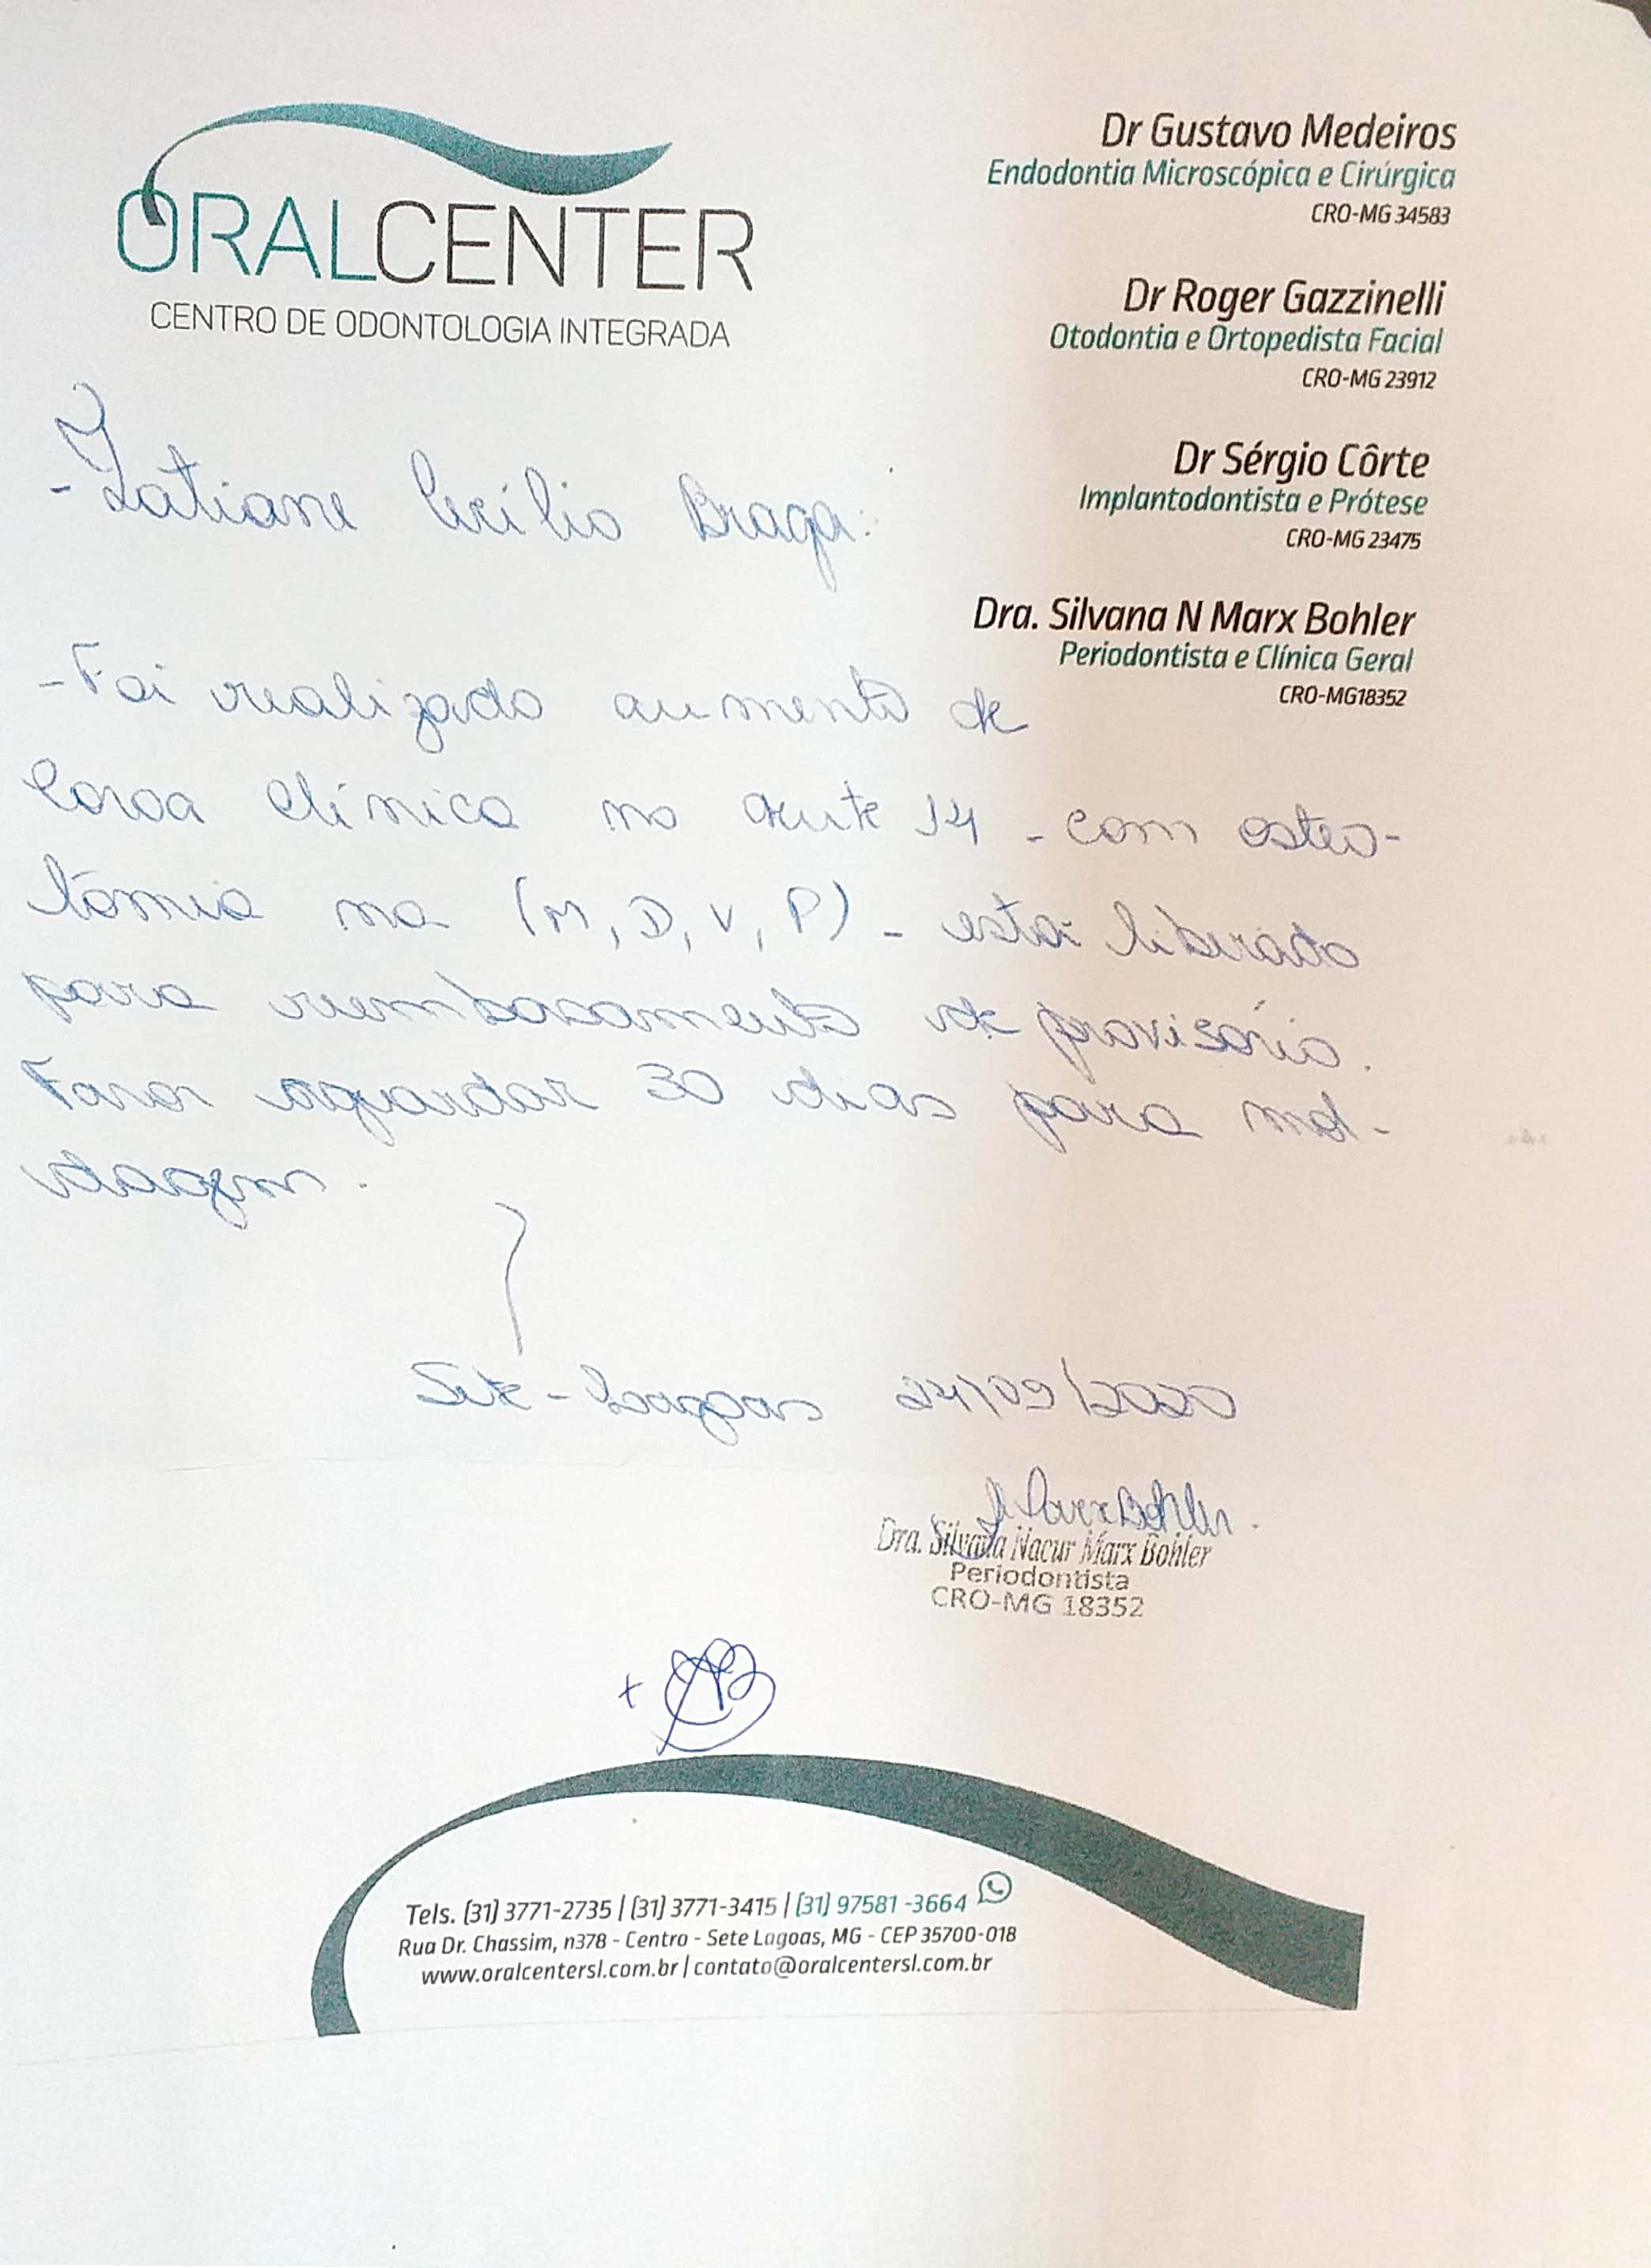 ORALCENTER
CENTRO DE ODONTOLOGIA INTEGRADA
Dr Gustavo Medeiros
Endodontia Microscópica e Cirúrgica
CRO-MG 34583
Dr Roger Gazzinelli
Otodontia e Ortopedista Facial
CRO-MG 23912
Dr Sérgio Côrte
Implantodontista e Prótese
CRO-MG 23475
Dra. Silvana N Marx Bohler
Periodontista e Clínica Geral
CRO-MG18352
- Tatiane Cecílio Braga:
- Foi realizado aumento de
Coroa clínica no dente 14 - com osteo-
tomia na (M, D, V, P) - está liberado
para reembasamento de provisório.
Favor aguardar 30 dias para mol-
dagem.
Sete-Lagoas 24/09/2020
Marx Bohler.
Dra. Silvana Nacur Marx Bohler
Periodontista
CRO-MG 18352
Tels. (31) 3771-2735 | (31) 3771-3415 | (31) 97581 -3664
Rua Dr. Chassim, n378 - Centro - Sete Lagoas, MG - CEP 35700-018
www.oralcentersl.com.br | contato@oralcentersl.com.br